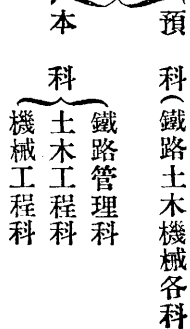 預科(鐵路土木機械各科
本科
鐵路管理科
土木工程科
機械工程科